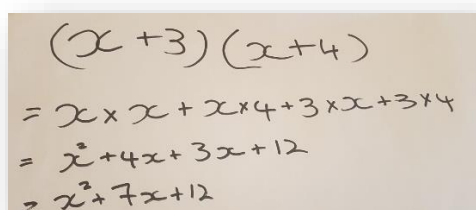 (x+3)(x+4)
= x × x + x×4+3×x+3×4
= x²+4x+3x+12
= x²+7x+12